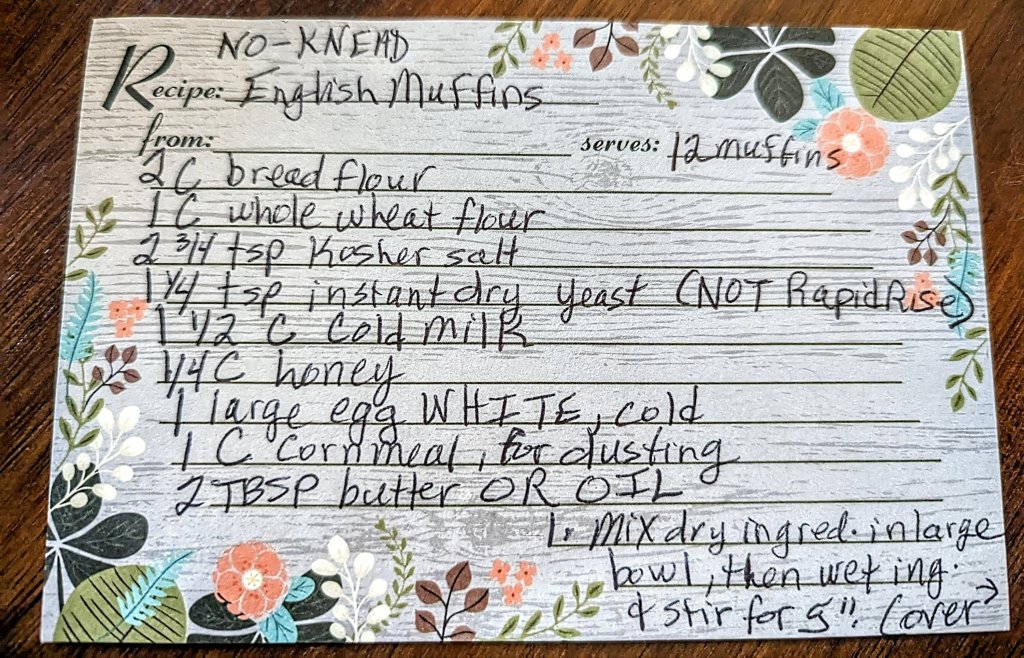 NO-KNEAD
Recipe: English Muffins
from: serves: 12 muffins
2 C bread flour
1 C whole wheat flour
2 3/4 tsp Kosher salt
1 1/4 tsp instant dry yeast (NOT RapidRise)
1 1/2 C cold milk
1/4 C honey
1 large egg WHITE, cold
1 C cornmeal, for dusting
2 TBSP butter OR OIL
1. Mix dry ingred. in large
bowl, then wet ing.
& stir for 5". Cover →